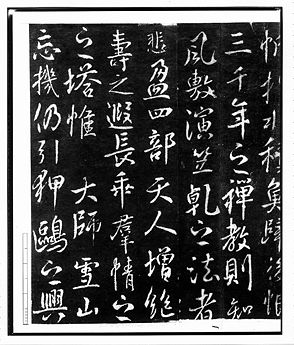 三千年之禪教則知
風敷演竺乾之法者
悲盈四部天人增絕
壽之遐長乖羣情之
之塔惟 大師雪山
忘機仍引狎鷗之興